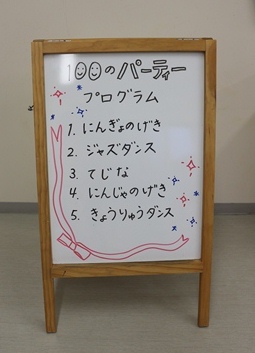 100のパーティー
プログラム
1. にんぎょのげき
2. ジャズダンス
3. てじな
4. にんじゃのげき
5. きょうりゅうダンス